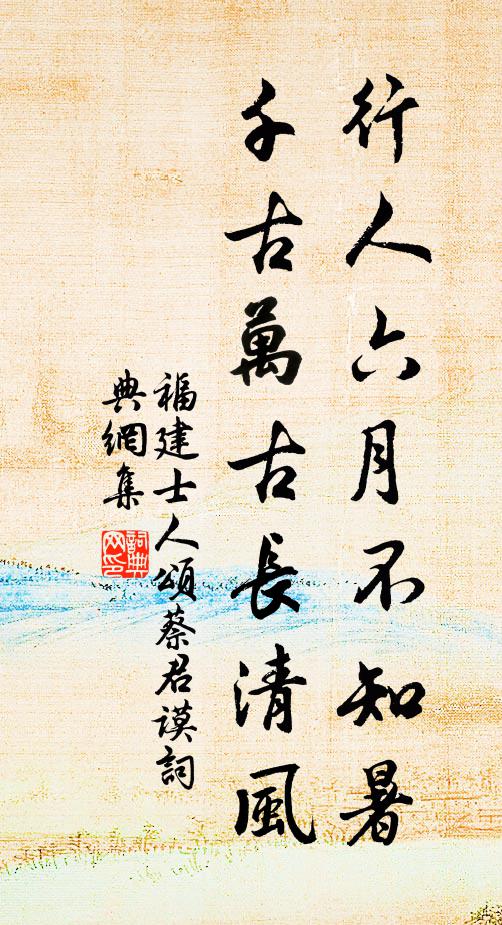 行人六月不知暑
千古萬古長清風
福建士人頌蔡君謨詞
典網集
詞典
网印